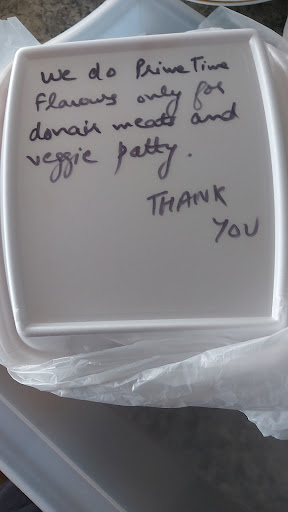 We do Prime Time
Flavours only for
donair meats and
veggie patty.
THANK
YOU